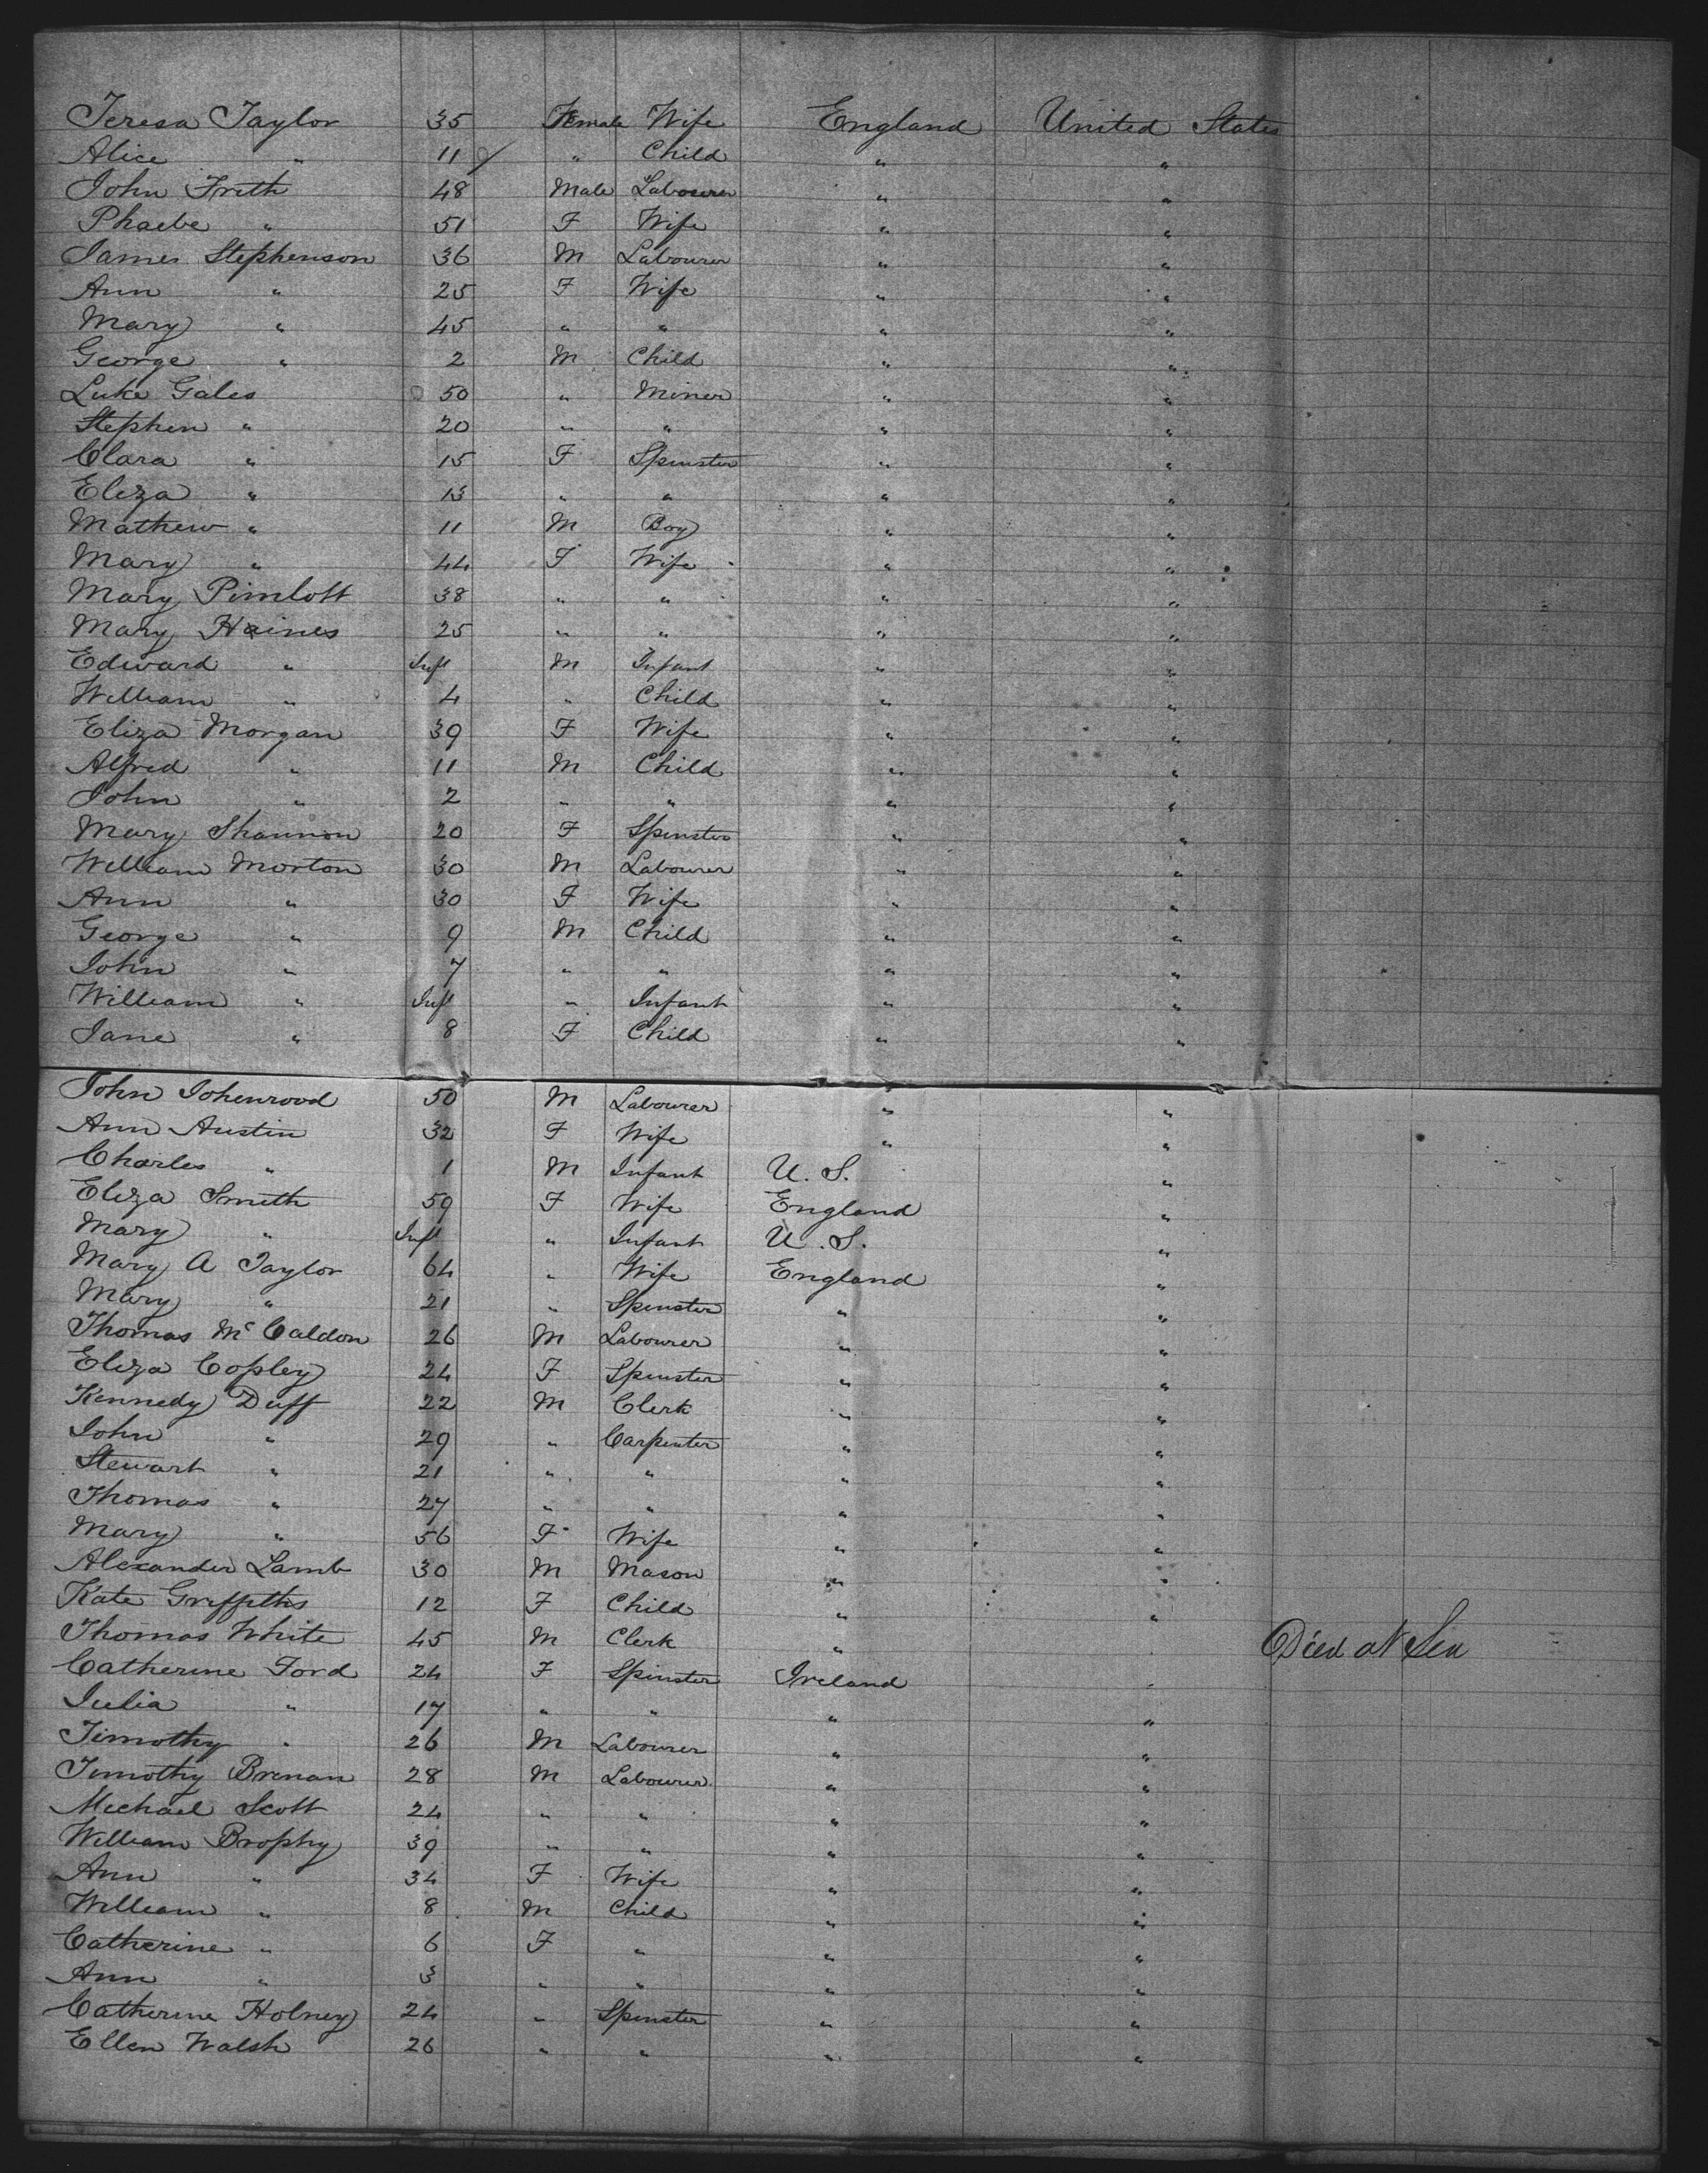 Teresa Taylor 35 Female Wife England United States
Alice " 11 " Child " "
John Frith 48 Male Labourer " "
Phaebe " 51 F Wife " "
James Stephenson 36 M Labourer " "
Ann " 25 F Wife " "
Mary " 45 " " " "
George " 2 M Child " "
Luke Gales 50 " Miner " "
Stephen " 20 " " " "
Clara " 15 F Spinster " "
Eliza " 13 " " " "
Mathew " 11 M Boy " "
Mary " 44 F Wife " "
Mary Pimlott 38 " " " "
Mary Haines 25 " " " "
Edward " Inft M Infant " "
William " 4 " Child " "
Eliza Morgan 39 F Wife " "
Alfred " 11 M Child " "
John " 2 " " " "
Mary Shannon 20 F Spinster " "
William Morton 30 M Labourer " "
Ann " 30 F Wife " "
George " 9 M Child " "
John " 7 " " " "
William " Inft " Infant " "
Jane " 8 F Child " "
John 50 M Labourer " "
Ann Austin 32 F Wife " "
Charles " 1 M Infant U. S. "
Eliza Smith 59 F Wife England "
Mary " Inft " Infant U. S. "
Mary A Taylor 64 " Wife England "
Mary " 21 " Spinster " "
Thomas Mc Caldon 26 M Labourer " "
Eliza Copley 24 F Spinster " "
Kennedy Duff 22 M Clerk " "
John " 29 " Carpenter " "
Stewart " 21 " " " "
Thomas " 27 " " " "
Mary " 56 F Wife " "
Alexander Lamb 30 M Mason " "
Kate Griffiths 12 F Child " "
Thomas White 45 M Clerk " Died at Sea
Catherine Ford 24 F Spinster Ireland "
Julia " 17 " " " "
Timothy " 26 M Labourer " "
Timothy Brenan 28 M Labourer " "
Michael Scott 24 " " " "
William Brophy 39 " " " "
Ann " 34 F Wife " "
William " 8 M Child " "
Catherine " 6 F " " "
Ann " 3 " " " "
Catherine Holney 24 " Spinster " "
Ellen Walsh 26 " " " "